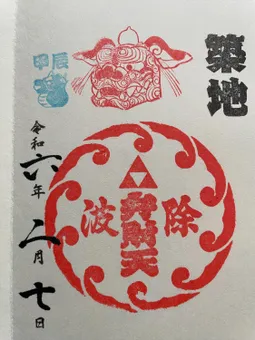 築地
弁財天
除
波
甲辰
令和六年二月七日